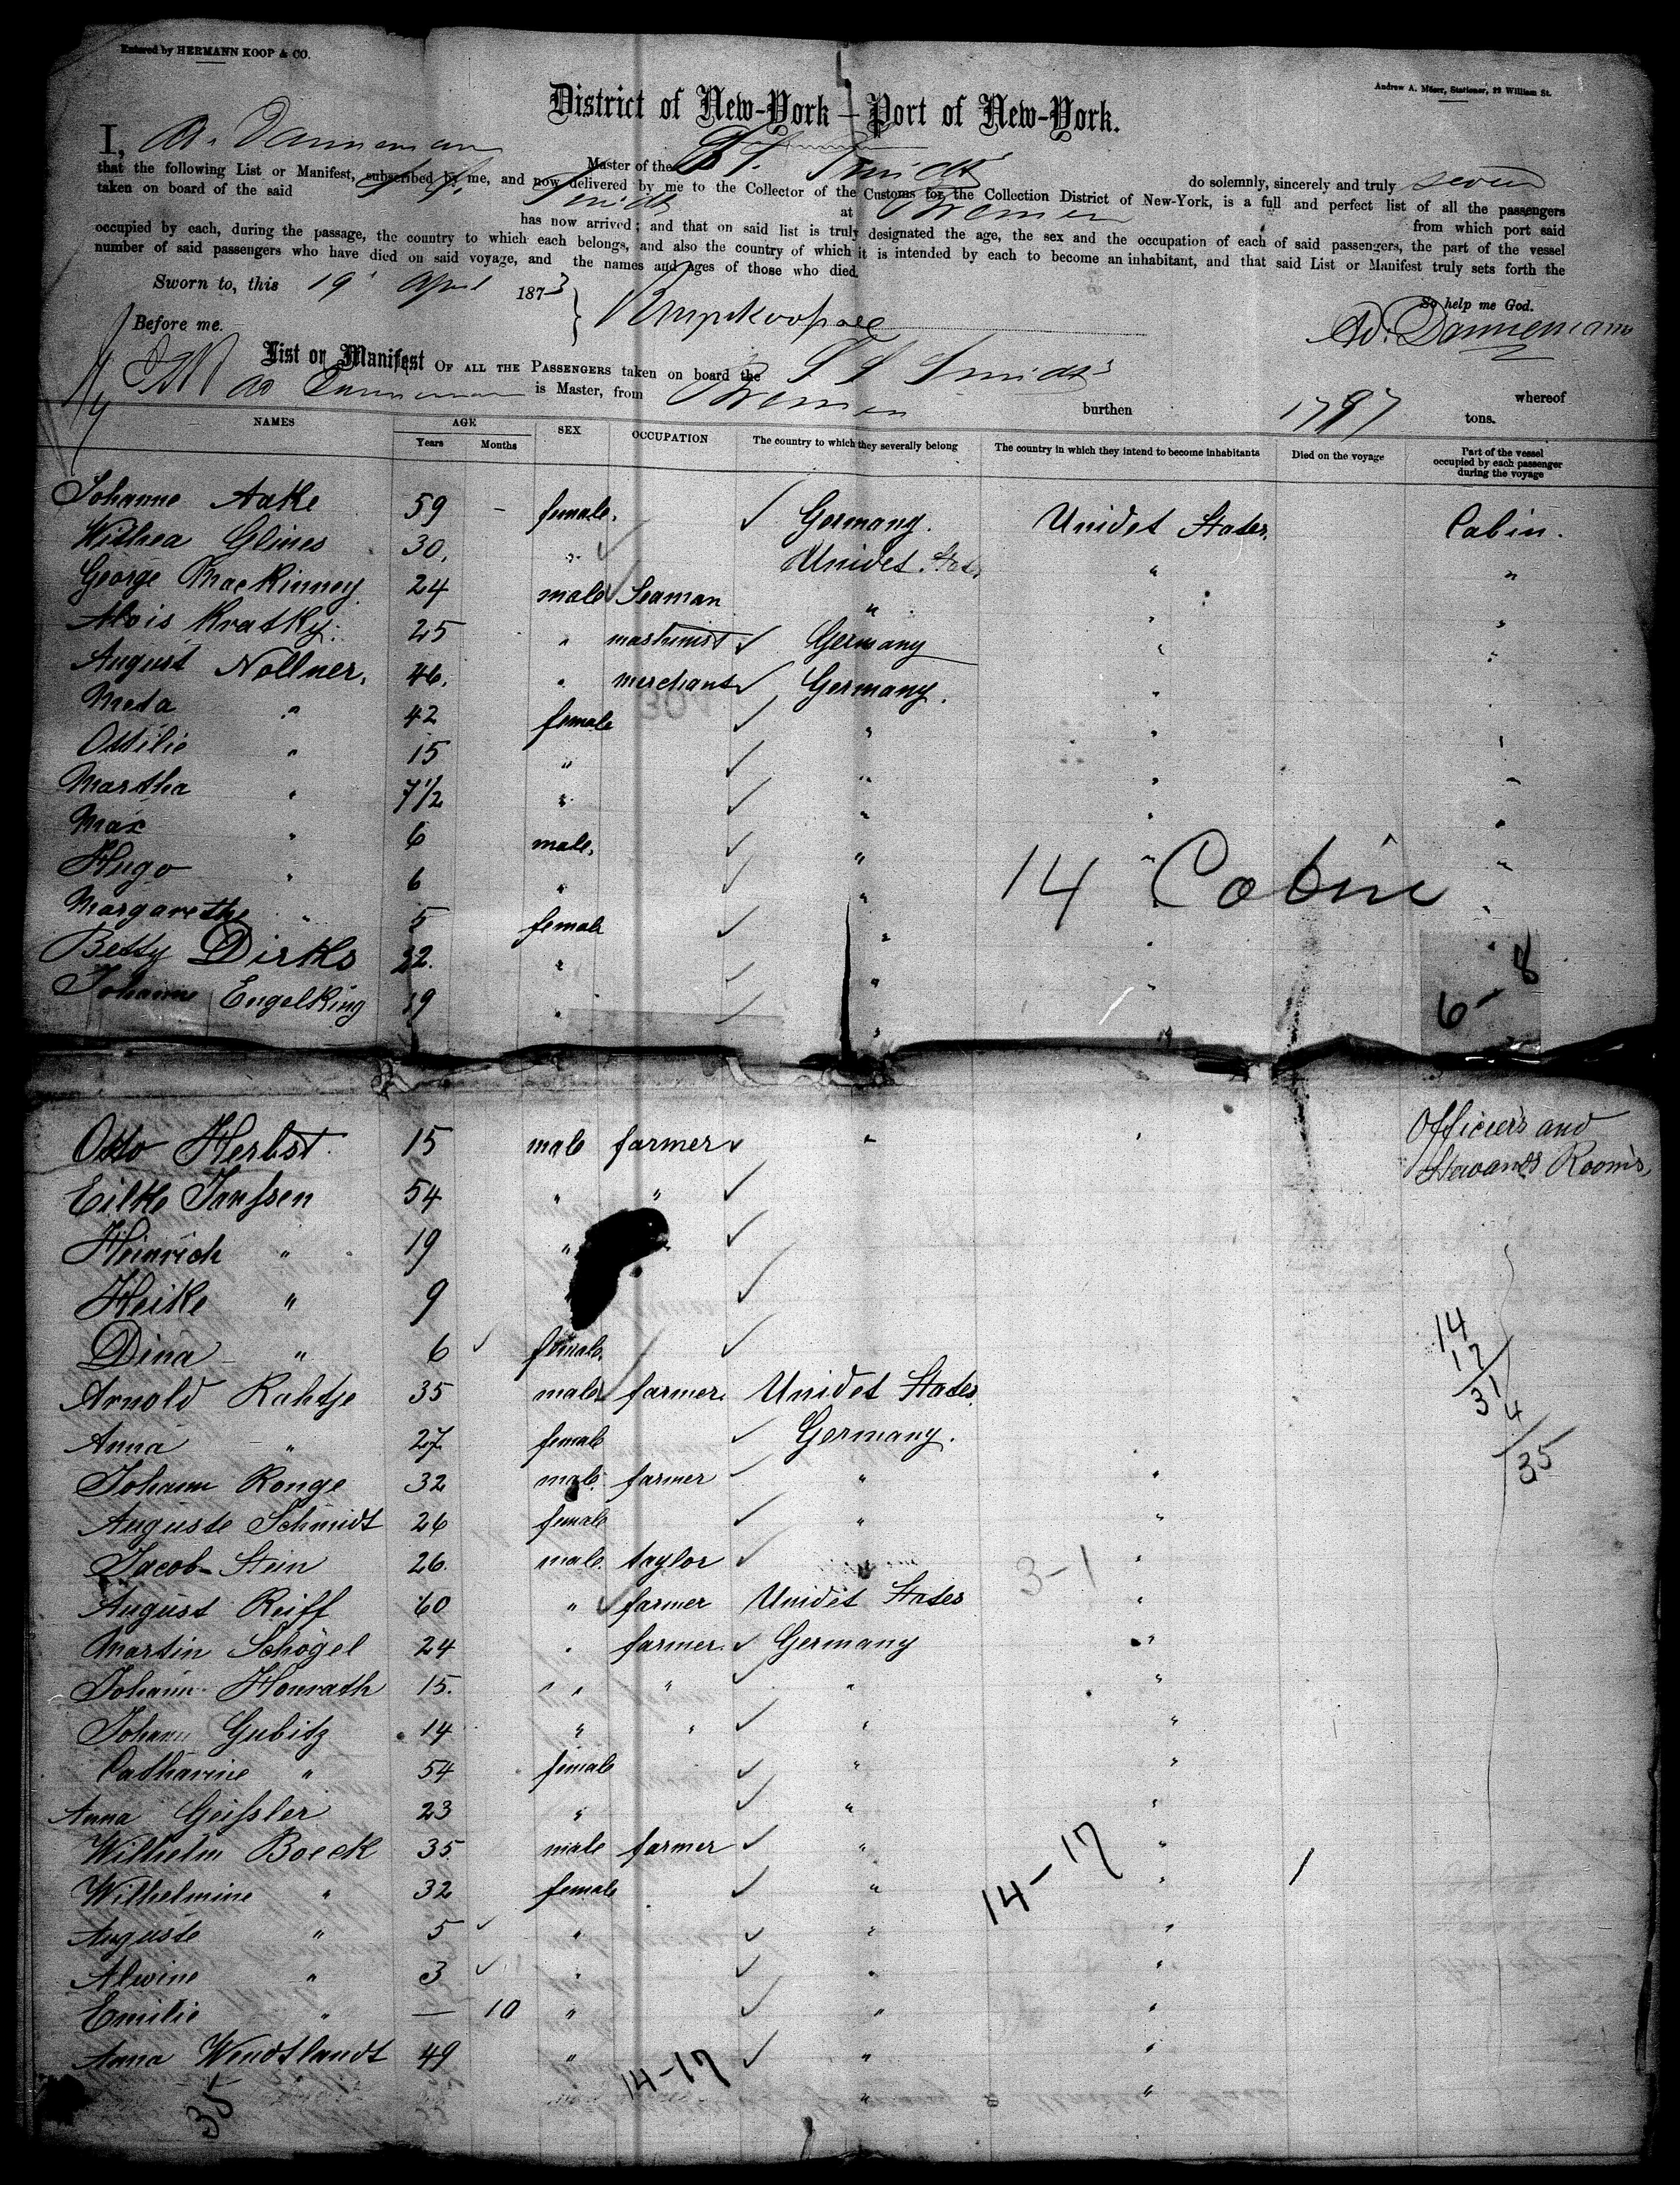 Entered by HERMANN KOOP & CO.
Andrew A. Möser, Stationer, 22 William St.
District of New-York – Port of New-York.
I, Ad. Danneman Master of the SS. Smidt do solemnly, sincerely and truly swear
that the following List or Manifest, subscribed by me, and now delivered by me to the Collector of the Customs for the Collection District of New-York, is a full and perfect list of all the passengers
taken on board of the said S.S. Smidt at Bremen from which port said
has now arrived; and that on said list is truly designated the age, the sex and the occupation of each of said passengers, the part of the vessel
occupied by each, during the passage, the country to which each belongs, and also the country of which it is intended by each to become an inhabitant, and that said List or Manifest truly sets forth the
number of said passengers who have died on said voyage, and the names and ages of those who died.
Sworn to, this 19 April 1873
So help me God.
Before me.
Ad. Dannemann
List or Manifest OF ALL THE PASSENGERS taken on board the S S Smidt whereof
Ad Danneman is Master, from Bremen burthen 1797 tons.
NAMES AGE SEX OCCUPATION The country to which they severally belong The country in which they intend to become inhabitants Died on the voyage Part of the vessel occupied by each passenger during the voyage
Years Months
Johanne Aake 59 – female. Germany. Unidet States. Cabin.
Withea Glines 30. " Unidet States " "
George MacKinney 24 male Seaman " " "
Alois Kratky. 25 " mashinist Germany " "
August Nollner. 46. " merchant Germany. " "
Meta " 42 female " "
Ottilie " 15 " " "
Martha " 7 1/2 " " " "
Max " 6 male. " " "
Hugo " 6 " " "
14 Cabin
Margarethe " 5 female " "
Betty Dirks 22. " " "
Johanne Engelking 19 " "
6 – 8
Otto Herbst. 15 male farmer " " Officier's and
Stewards Rooms,
Eilke Janssen 54 " "
Heinrich " 19 "
Heike " 9
Dina " 6 female.
14
17
31
4
35
Arnold Rahtje 35 male farmer. Unidet States.
Anna " 27 female Germany.
Johann Ronge 32 male. farmer " "
Auguste Schmidt 26 female " "
Jacob Stein 26. male. taylor " "
3-1
August Reiff 60 " farmer Unidet States "
Martin Schögel 24 " farmer. Germany "
Johann Honrath 15. " " " "
Johann Gubitz 14 " " " "
Catharine " 54 female " "
Anna Geissler 23 " " "
Wilhelm Boeck 35 male farmer " "
14-17
1
Wilhelmine " 32 female " "
Auguste " 5 " " "
Alwine " 3 " " "
Emilie " — 10 " " "
Anna Wendtlandt 49 " " "
14-17
35